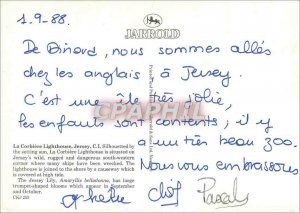 1.9-88.
JARROLD
De Dinard, nous sommes allés
chez les anglais à Jersey.
C'est une île très jolie,
les enfants sont contents ; il y
a un très beau zoo.
Nous vous embrassons
La Corbière Lighthouse, Jersey, C.I. Silhouetted by
the setting sun, La Corbière Lighthouse is situated on
Jersey's wild, rugged and dangerous south-western
corner where many ships have been wrecked. The
lighthouse is joined to the shore by a causeway which
is covered at high tide.
The Jersey Lily, Amaryllis belladonna, has large
trumpet-shaped blooms which appear in September
and October.
Pascal